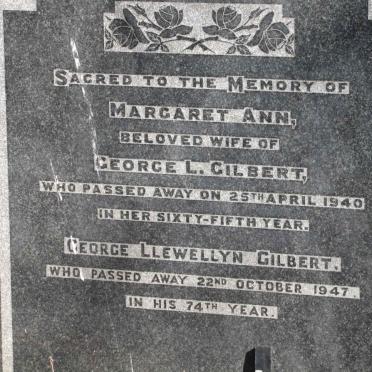 SACRED TO THE MEMORY OF
MARGARET ANN,
BELOVED WIFE OF
GEORGE L. GILBERT,
WHO PASSED AWAY ON 25TH APRIL 1940
IN HER SIXTY-FIFTH YEAR.
GEORGE LLEWELLYN GILBERT.
WHO PASSED AWAY 22ND OCTOBER 1947.
IN HIS 74TH YEAR.